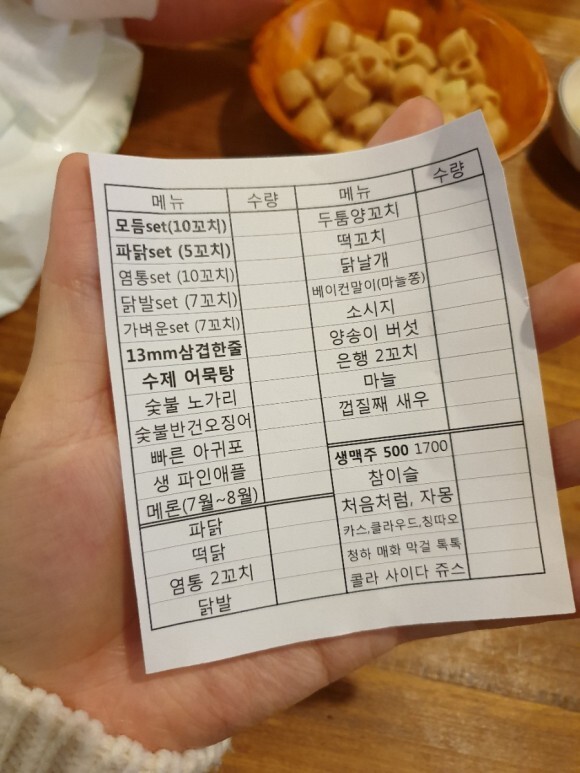 메뉴
수량
모듬set(10꼬치)
파닭set (5꼬치)
염통set (10꼬치)
닭발set (7꼬치)
가벼운set (7꼬치)
13mm삼겹한줄
수제 어묵탕
숯불 노가리
숯불반건오징어
빠른 아귀포
생 파인애플
메론(7월~8월)
파닭
떡닭
염통 2꼬치
닭발
메뉴
수량
두툼양꼬치
떡꼬치
닭날개
베이컨말이(마늘쫑)
소시지
양송이 버섯
은행 2꼬치
마늘
껍질째 새우
생맥주 500 1700
참이슬
처음처럼, 자몽
카스,클라우드,칭따오
청하 매화 막걸 톡톡
콜라 사이다 쥬스